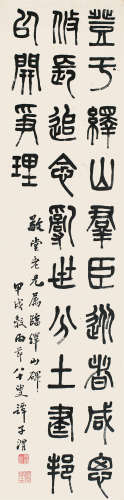 登于繹山羣臣從者咸思
攸長追念亂世分土建邦
以開爭理
敬堂老兄屬臨繹山碑
甲戌穀雨八叟譚子